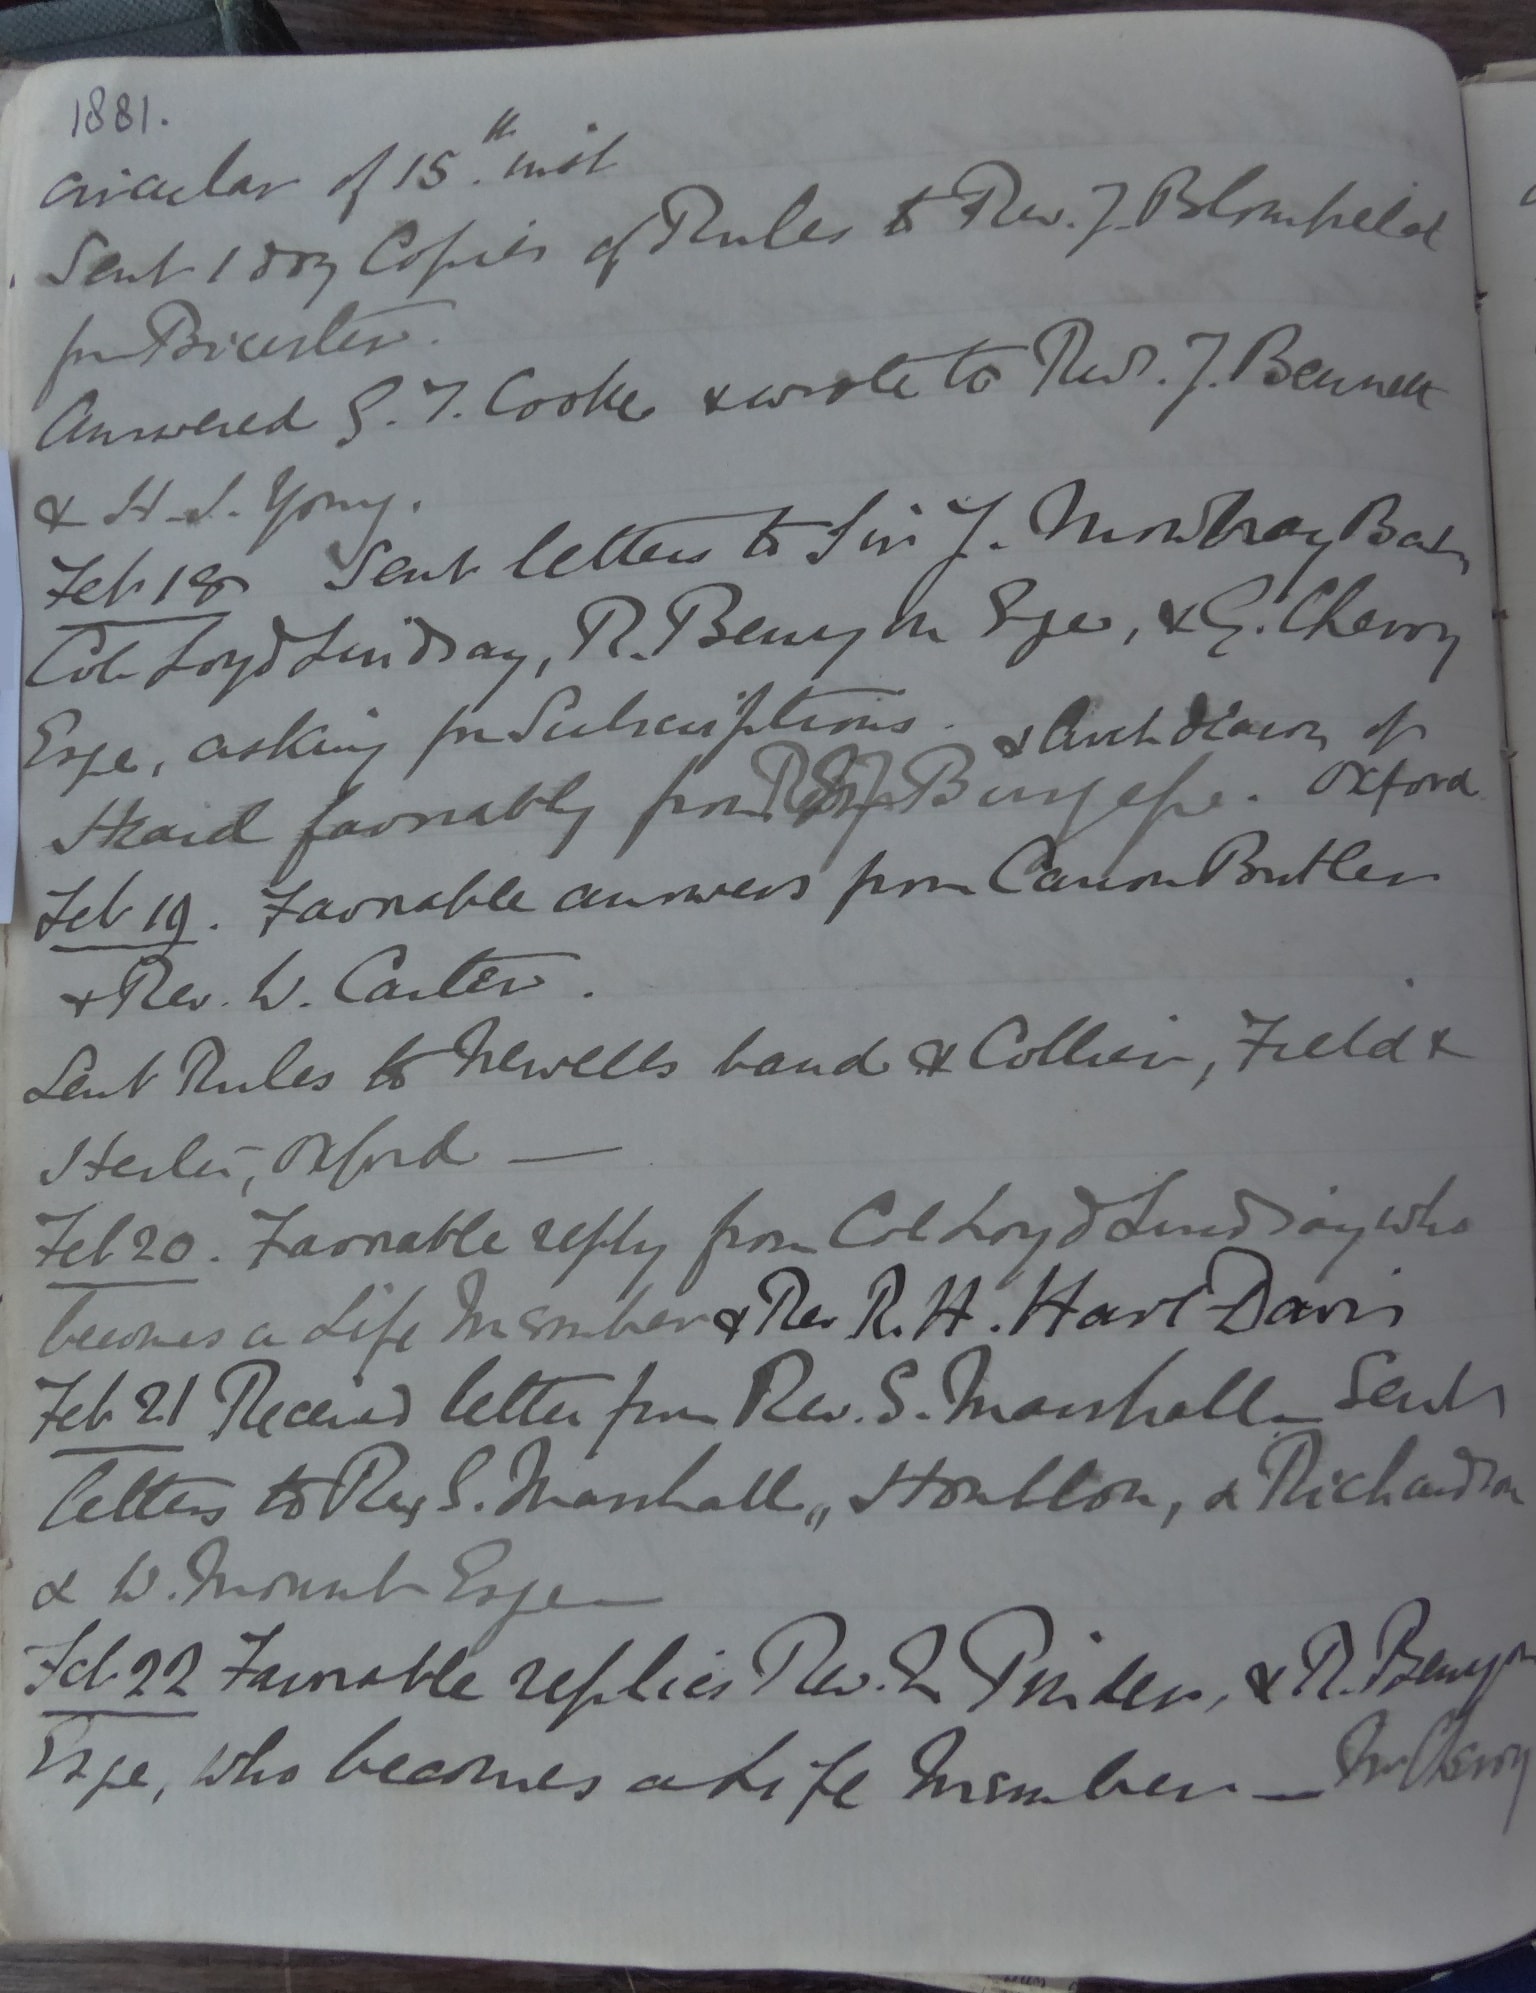 1881.
circular of 15th inst
Sent 1 doz Copies of Rules to Rev. J. Blomfield
for Bicester.
Answered G. F. Cooke & wrote to Revd. J. Bennett
& H. S. Yony.
Feb 18 Sent letters to Sir J. Mowbray Bart,
Col. Loyd Lindsay, R. Benyon Esqe, & G. Cherry
Esqe, asking for Subscriptions. & Archdeacon of
Heard favorably from Burgesse. Oxford
Feb 19. Favorable answers from Canon Butler
& Rev. W. Carter.
Sent Rules to Newells band & Collier, Field &
Hester, Oxford —
Feb 20. Favorable reply from Col Loyd Lindsay who
becomes a Life Member & Rev R. H. Hart Davis
Feb 21 Received letter from Rev. S. Marshall – Sent
letters to Rev S. Marshall, Houblon, & Richardson
& W. Mount Esqe —
Feb 22 Favorable replies Rev. Prinder, & R. Benyon
Esqe, who becomes a Life Member — Mr Cherry